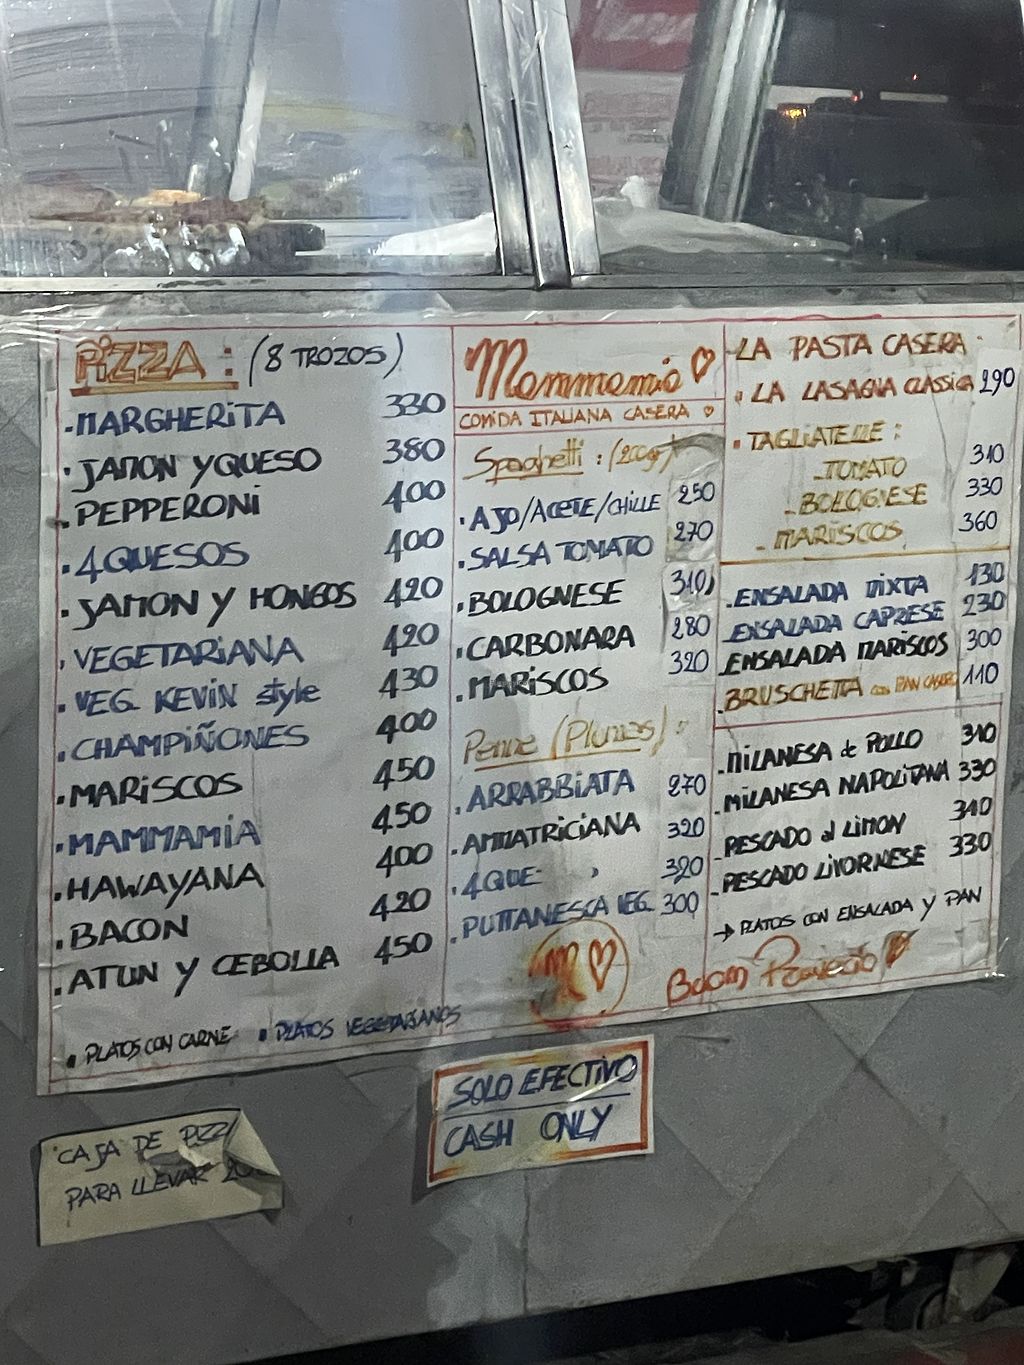 PIZZA : (8 TROZOS)
-MARGHERITA 330
·JAMON Y QUESO 380
·PEPPERONI 400
·4 QUESOS 400
·JAMON Y HONGOS 420
·VEGETARIANA 420
·VEG. KEVIN style 430
·CHAMPIÑONES 400
·MARISCOS 450
·MAMMAMIA 450
·HAWAYANA 400
·BACON 420
·ATUN Y CEBOLLA 450
· PLATOS CON CARNE · PLATOS VEGETARIANOS
Mammamia ♡
COMIDA ITALIANA CASERA ♡
Spaghetti : (200gr)
·AJO/ACETE/CHILLE 250
·SALSA TOMATO 270
·BOLOGNESE 310
·CARBONARA 280
·MARISCOS 320
Penne (Plumas) :
·ARRABBIATA 270
·AMMATRICIANA 320
·4QUE 320
·PUTTANESCA VEG. 300
M ♡
-LA PASTA CASERA
· LA LASAGNA CLASSICA 290
· TAGLIATELLE :
-TOMATO 310
-BOLOGNESE 330
-MARISCOS 360
-ENSALADA MIXTA 130
-ENSALADA CAPRESE 230
-ENSALADA MARISCOS 300
-BRUSCHETTA con PAN CASERO 110
-MILANESA de POLLO 310
-MILANESA NAPOLITANA 330
-PESCADO al LIMON 310
-PESCADO LIVORNESE 330
→ PLATOS CON ENSALADA Y PAN
Buon Provecho
SOLO EFECTIVO
CASH ONLY
CAJA DE PIZZ
PARA LLEVAR